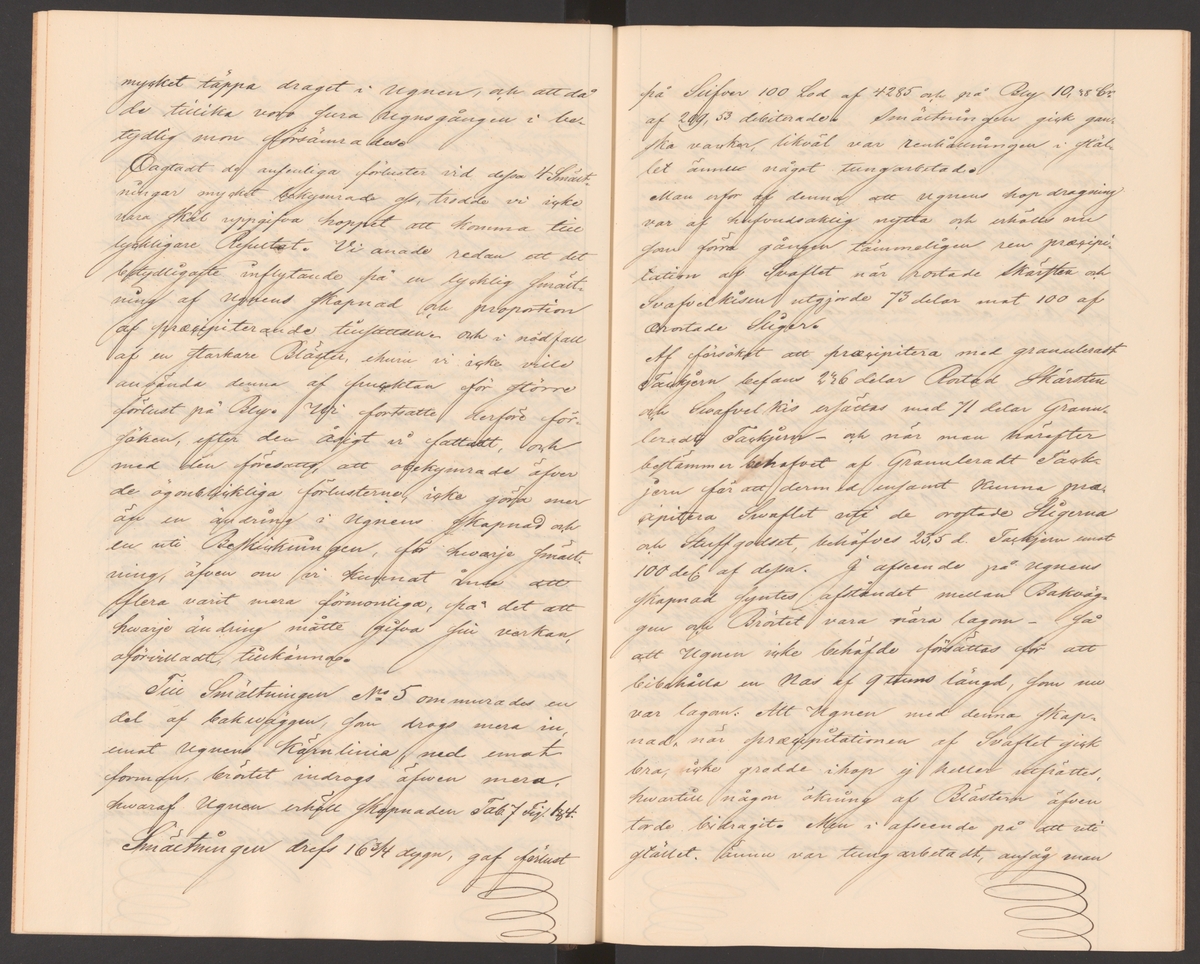 mycket täppa draget i Ugnen, och att då
de tillika voro sura Ugnsgången i be-
tydlig mon försämrades.
Oagtadt de ansenliga förluster vid dessa 4 Smält-
ningar mycket bekymrade oss, trodde vi icke
vara skäl uppgifva hoppet att komma till
lyckligare Resultat. Vi anade redan att det
betydligaste inflytande på en lycklig smält-
ning af Ugnens skapnad och proportion
af præcipiterande tillsatsen och i nödfall
af en starkare Bläster, ehuru vi icke ville
använda denna af fruktan för större
förlust på Bly. Vi fortsatte derföre för-
söken, efter den åsigt vi fattadt, och
med den föresatts, att obekymrade öfver
de ögonblickliga förlusterne, icke göra mer
än en ändring i Ugnens skapnad och
en uti Beskickningen, för hwarje smält-
ning, äfven om vi kunnat inse att
flera varit mera förmonliga, på det att
hwarje ändring måtte gifva sin verkan,
oförvilladt, tillkänna.
Till Smältningen No 5 ommurades en
del af bakwäggen, som drogs mera in,
emot Ugnens Kärnlinia, ned emot
forman, bröstet indrogs äfwen mera,
hwaraf Ugnen erhöll skapnaden Tab. 7 fig.
Smältningen drefs 16 3/4 dygn, gaf förlust
på Silfver 100 Lod af 4285 och på Bly 10,
af 299,53 debiterade. Smältningen gick gan-
ska vacker, likväl var renhållningen i stäl-
let ännu något tungarbetad.
Man erfor af denna att Ugnens hopdragning
var af hufvudsaklig nytta och erhölls nu
som förra gången tämmeligen ren præcipi-
tation af Svaflet när rostade Skärsten och
Svafvelkisen utgjorde 73 delar mot 100 af
orostade Sliger.
Af försöket att præcipitera med granuleradt
Tackjern befans 236 delar Rostad Skärsten
och Svafvelkis ersättas med 71 delar Granu-
leradt Tackjern – och när man härefter
bestämmer behofvet af Granuleradt Tack-
jern för att dermed ensamt kunna præ-
cipitera Svaflet uti de orostade Sligerna
och Stuffgodset, behöfves 23,5 d. Tackjern emot
100 del. af dessa. I afseende på Ugnens
skapnad syntes afståndet mellan Bakväg-
gen och Bröstet vara nära lagom – så
att Ugnen icke behöfde försättas för att
bibehålla en Nas af 9 tums längd, som nu
var lagom. Att Ugnen med denna skap-
nad, när præcipitationen af Svaflet gick
bra, icke grodde ihop ej heller utfrättes,
hwartill någon ökning af Blästern äfven
torde bidragit. Men i afseende på att uti
stället ännu var tungarbetadt, ansåg man